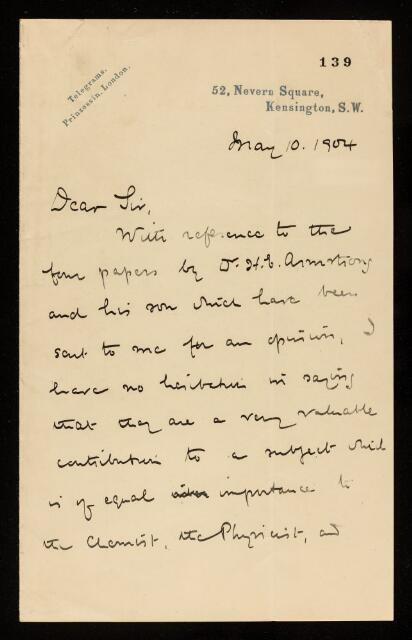 139
Telegrams.
Prinzessin. London.
52, Nevern Square,
Kensington, S.W.
May 10. 1904
Dear Sir,
With reference to the
four papers by Dr. H.E. Armstrong
and his son which have been
sent to me for an opinion, I
have no hesitation in saying
that they are a very valuable
contribution to a subject which
is of equal importance to
the Chemist, the Physicist, and